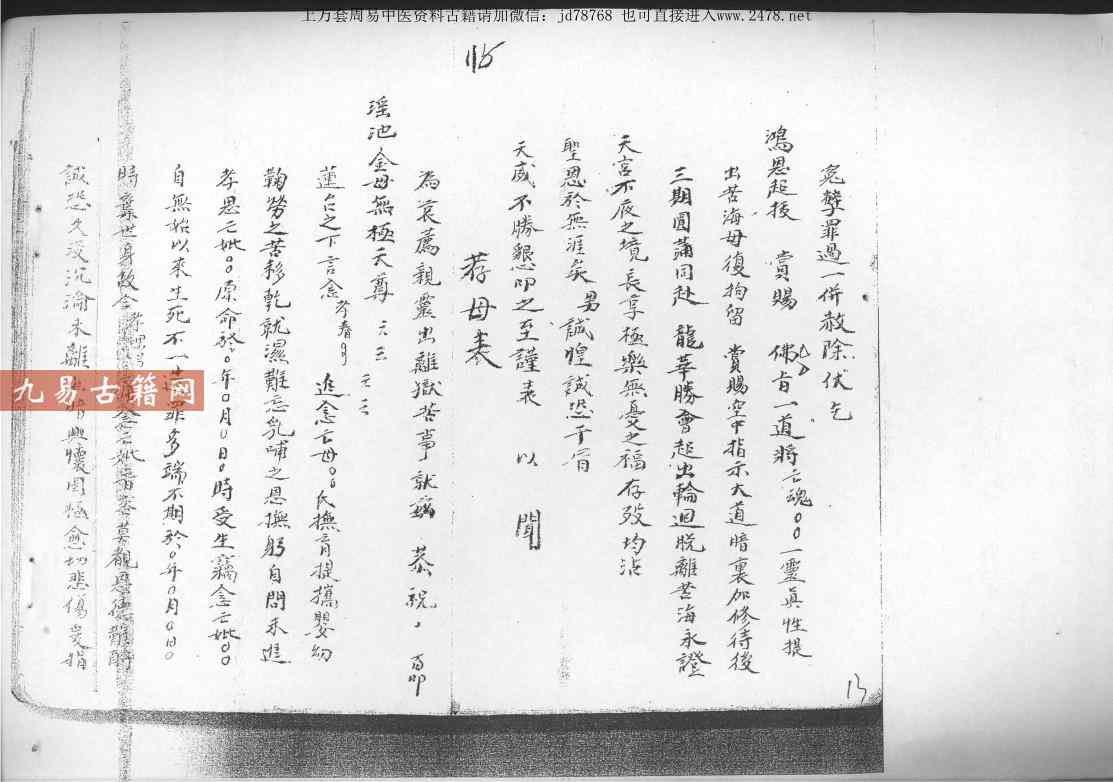 上万套周易中医资料古籍请加微信：jd78768 也可直接进入www.2478.net
115
冤孽罪過一併赦除伏乞
鴻恩起後 賞賜 佛旨一道將亡魂00一靈真性提
出苦海毋復拘留 賞賜空中指示大道暗裏加修待後
三期圓滿同赴 龍華勝會超出輪迴脫離苦海永證
天宮不夜之境長享極樂無憂之福存歿均沾
聖恩於無涯矣 男誠惶誠恐千首
天威不勝懇叩之至謹表 以 聞
荐母表
為哀薦親靈出離獄苦事就 恭祝 百叩
瑶池金母無極天尊
蓮台之下言念 追念亡母00氏撫育提攜嬰幼
鞠勞之苦移乾就濕難忘乳哺之恩撫躬自問未進
孝思亡妣00原命於0年0月0日0時受生竊念亡妣00
自無始以來生死不一 罪多端不期於0年0月0日0
時棄世身故
誠恐久沒沉淪未離 興懷罔極愈切悲傷
13
九易古籍网